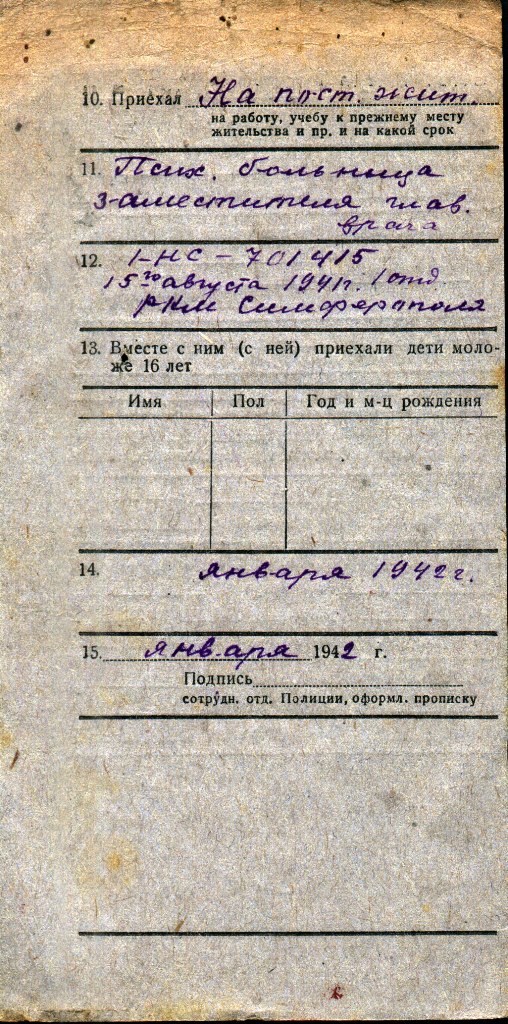 10. Приехал На пост. жит.
на работу, учебу к прежнему месту
жительства и пр. и на какой срок
11. Псих. больница
заместителя глав.
врача
12. 1-НС - 701415
15го августа 1941г. 1 отд.
РКМ Симферополя
13. Вместе с ним (с ней) приехали дети моло-
же 16 лет
Имя Пол Год и м-ц рождения
14. января 1942 г.
15. января 1942 г.
Подпись
сотрудн. отд. Полиции, оформл. прописку